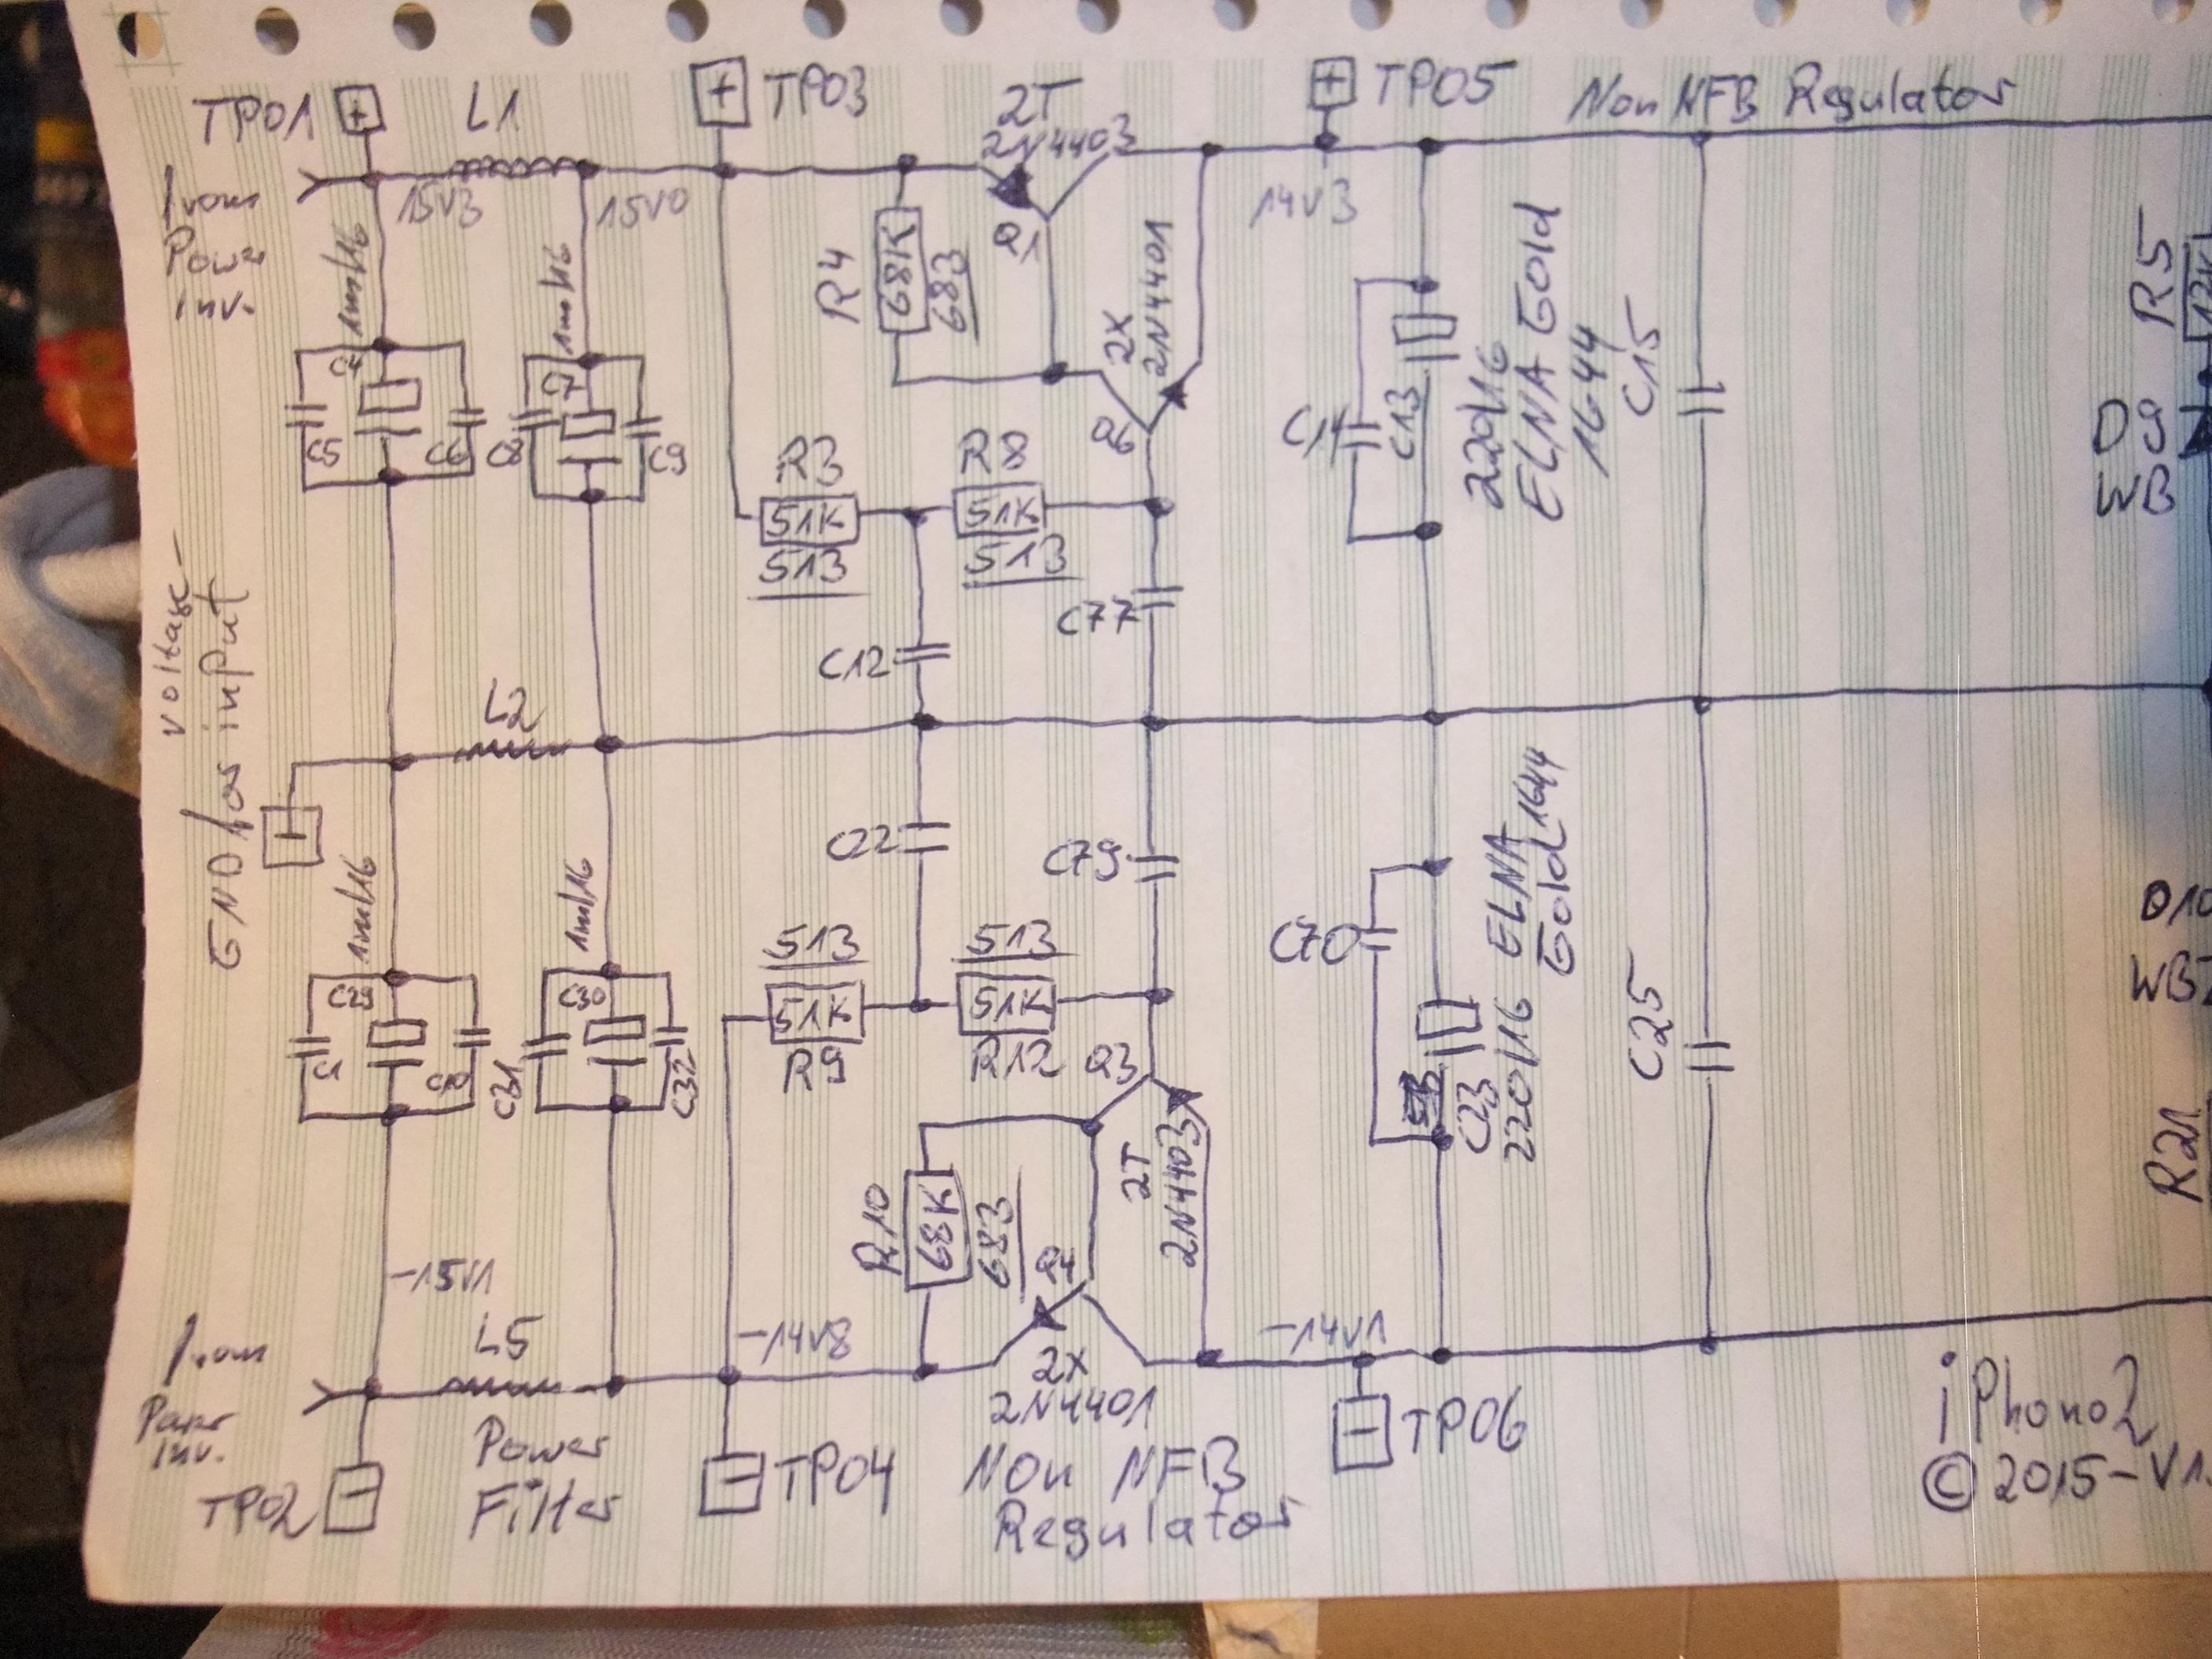 TP01
L1
TP03
2T
2N4403
TP05
Non NFB Regulator
from
Power
inv.
15V3
15V0
14V3
1m/16
1m/16
R4
68K
683
Q1
2X
2N4401
Q6
C5
C6
C8
C7
C9
R3
51K
513
R8
51K
513
C77
C12
C13
220/16
ELNA Gold
16-44
C15
R5
12K
D9
WB
voltage-
GND for input
L2
C22
C79
1m/16
1m/16
C29
C30
C31
C32
513
51K
R9
513
51K
R12
Q3
2T
2N4403
C70
C23
220/16 ELNA
Gold 1644
C25
D10
WBZ
R21
R10
68K
683
-15V1
-14V8
-14V1
from
inv.
L5
Power
Filter
TP02
TP04
2X
2N4401
Non NFB
Regulator
TP06
iPhono2
©2015-V1.